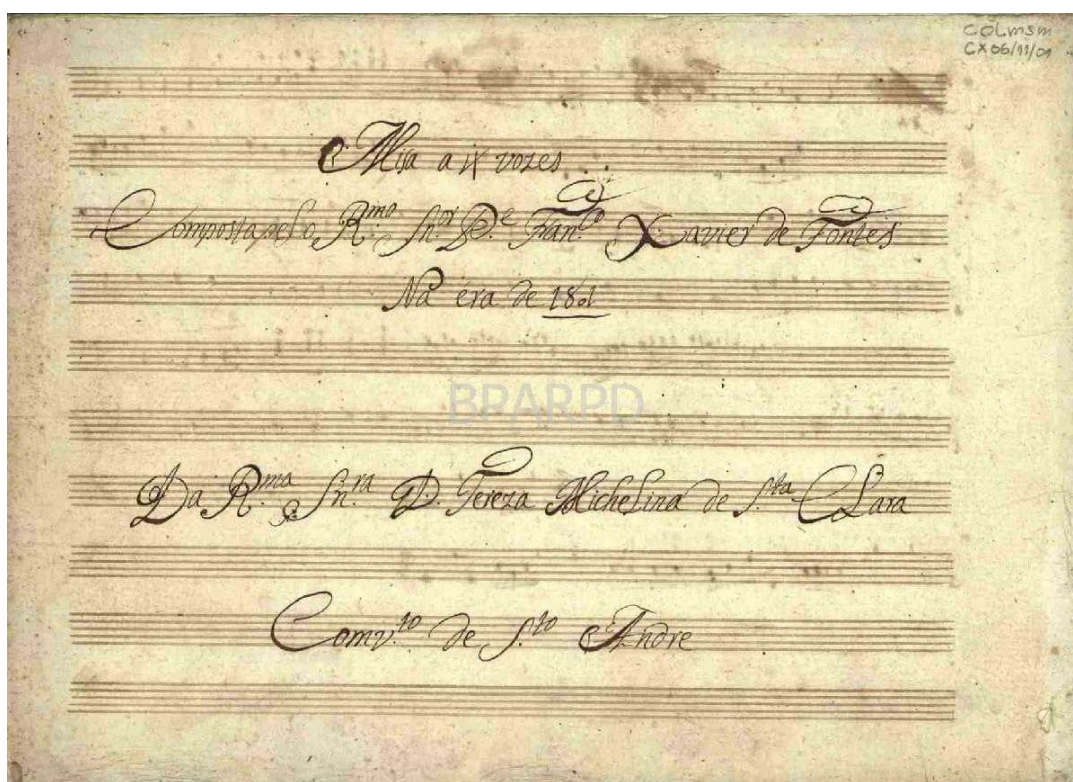 COLmsm
CX06/11/01
Missa a iv vozes
Composta pello R.mo Sn.or P.e Fran.co Xavier de Fontes
Na era de 1801
BPARPD
Da R.ma Sn.ra D. Tereza Michelina de S.ta Clara
Comv.to de S.to Andre